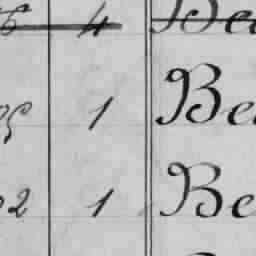 4 Be
1 Be
2 1 Be